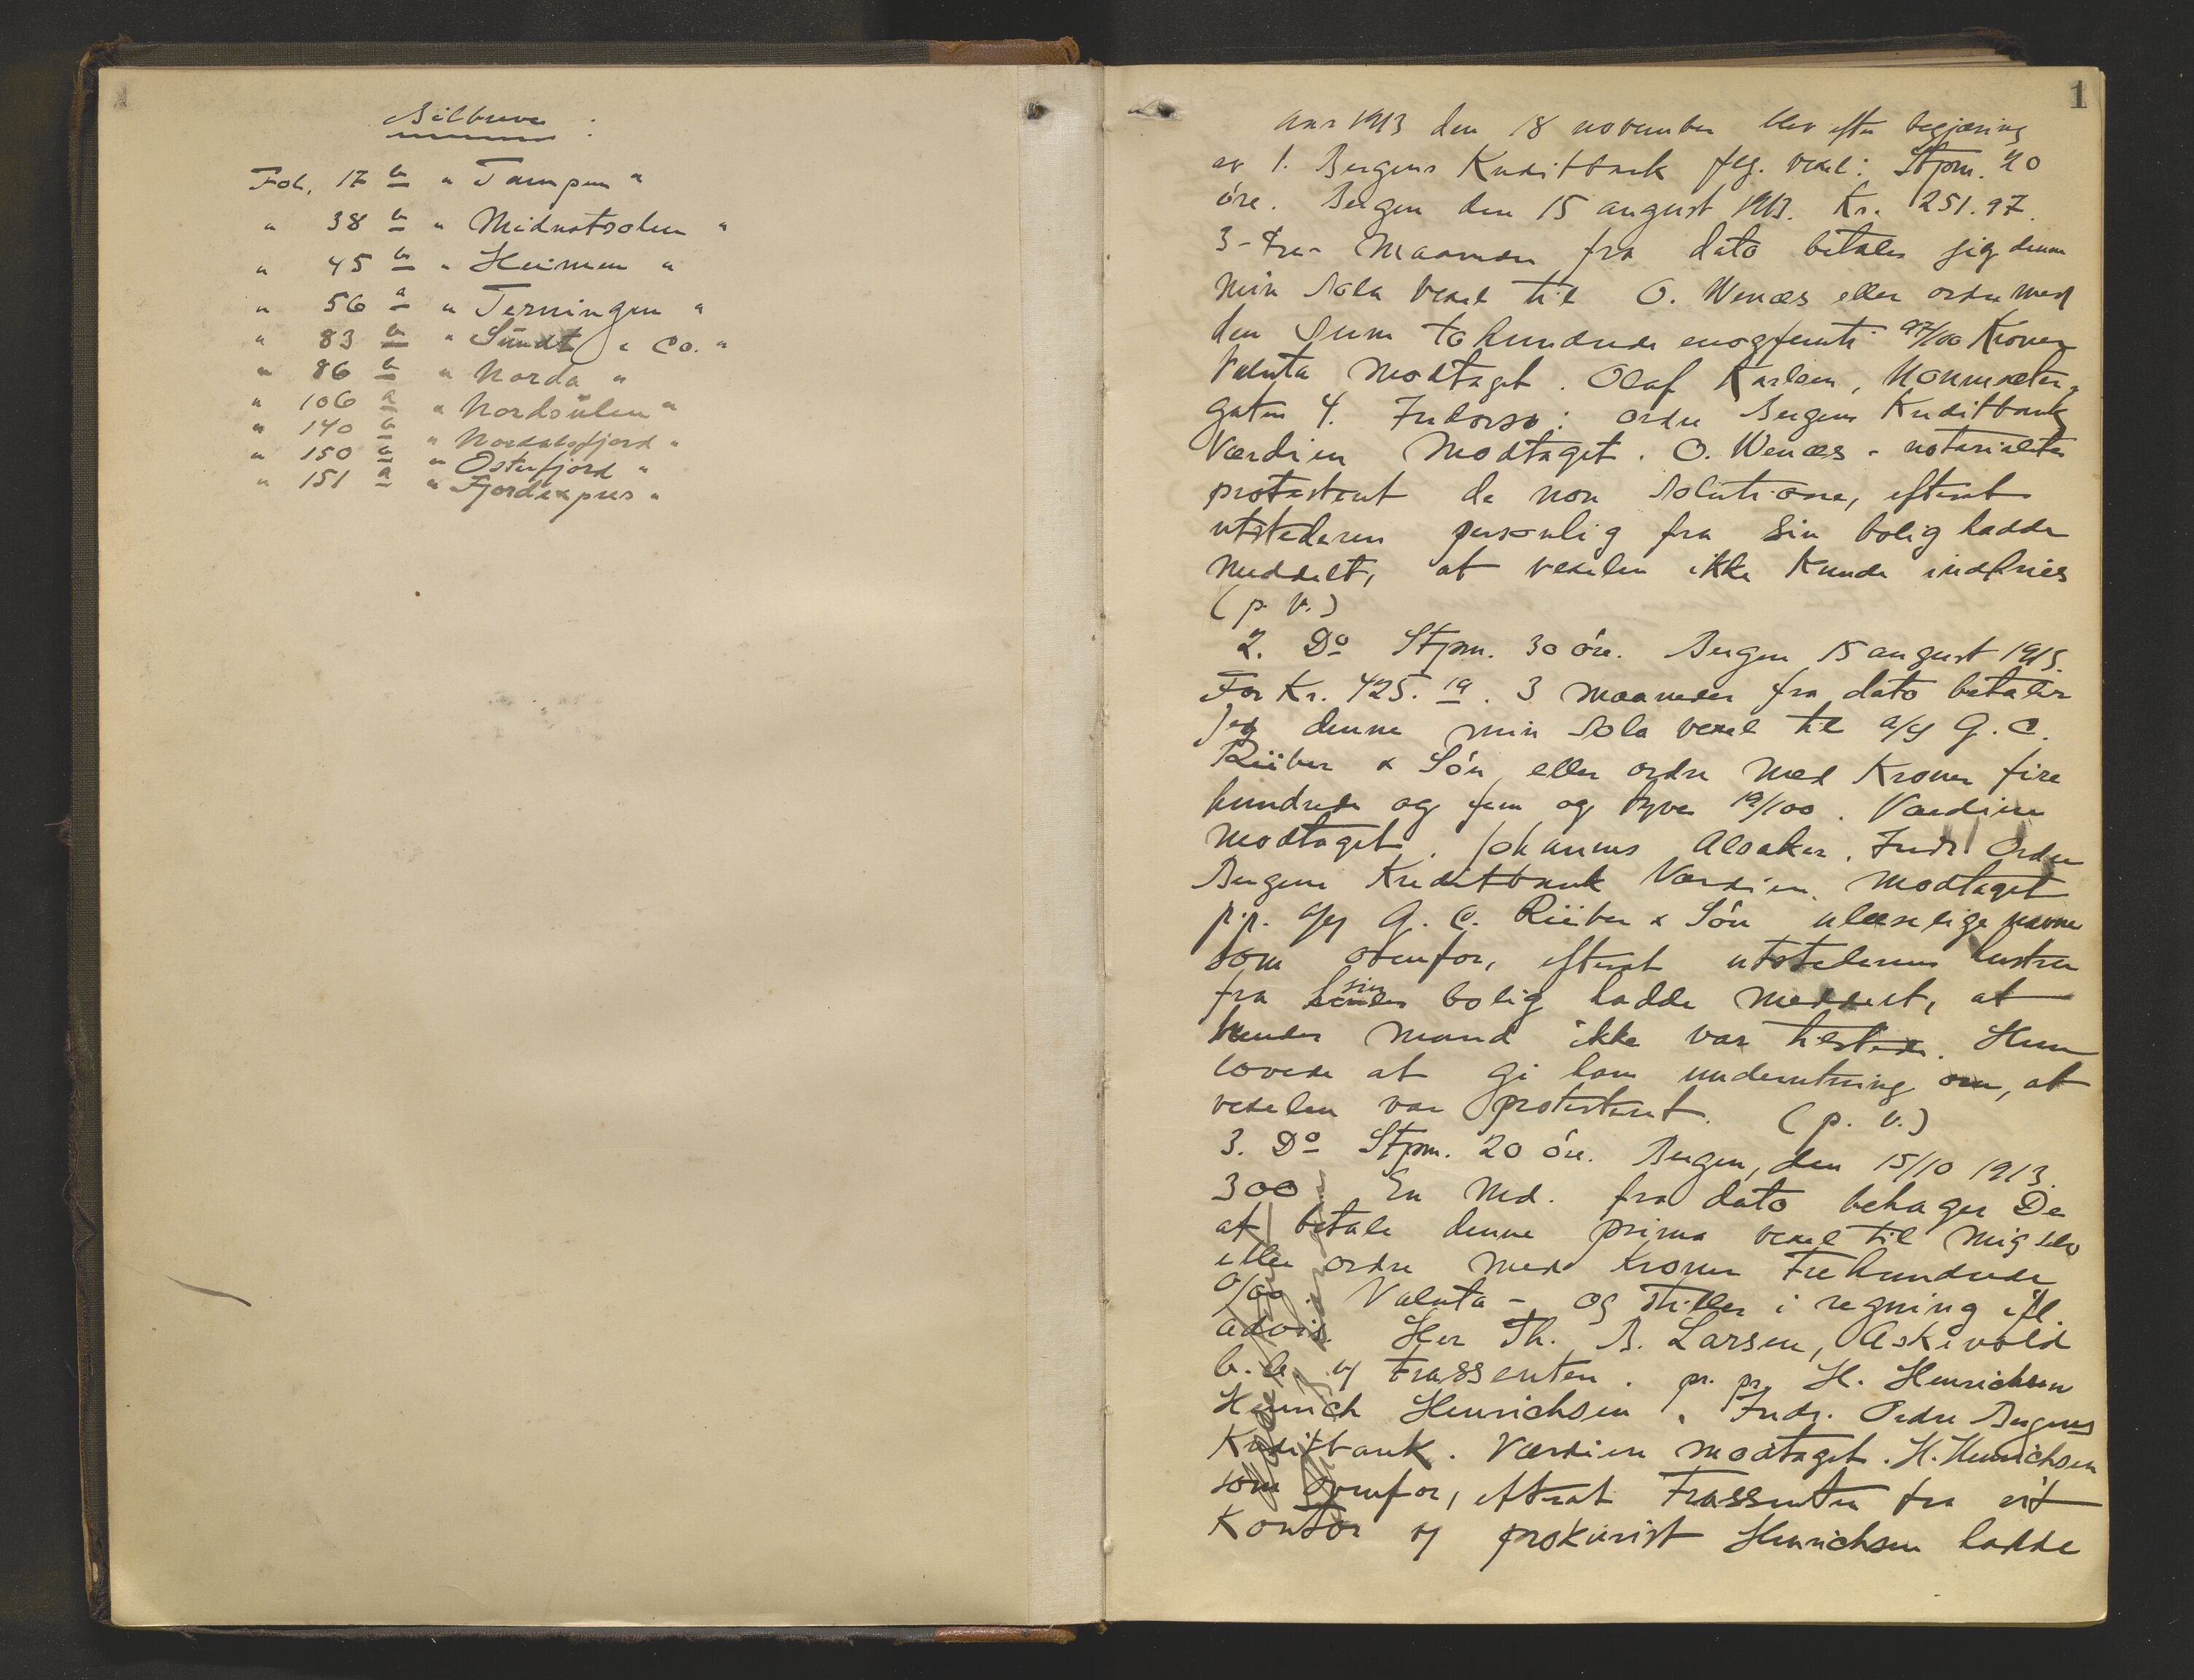 Bilbreve :
Fol. 17 b " Tampen "
" 38 b " Midnatsolen "
" 45 b " Heimen "
" 56 a " Terningen "
" 83 b " Sundt & Co. "
" 86 b " Norda "
" 106 a " Nordsulen "
" 140 b " Nordalsfjord "
" 150 b " Osterfjord "
" 151 a " Fjordexpres "
1
Aar 1913 den 18 november blev efter begjæring
av 1. Bergens Kreditbank flg. vexel: Stpm. 20
öre. Bergen den 15 august 1913. Kr. 251.97.
3-tre- Maaneder fra dato betaler jeg denne
min Sola vexel til O. Wenæs eller ordre med
den Sum to hundrede enogfemti 97/100 Kroner
Valuta Modtaget. Olaf Karlsen, Nonnesæter-
gaten 4. Indorso: ordre Bergens Kreditbank
Værdien Modtaget. O. Wenæs - notarialiter
protestert de non Solutione, efterat
utstederen personlig fra sin bolig hadde
meddelt, at vexelen ikke kunde indfries
(p. v.)
2. Do Stpm. 30 öre. Bergen 15 august 1913.
For Kr. 425.19. 3 maaneder fra dato betaler
Jeg denne min Sola vexel til a/s G. C.
Rieber & Sön eller ordre med Kroner fire
hundrede og fem og tyve 19/100. Værdien
Modtaget. Johannes Alsaker. Inds. Ordre
Bergens Kreditbank Værdien Modtaget
p.p. a/s G. C. Rieber & Sön ulæselige navne
som ovenfor, efterat utstederens hustru
fra sin bolig hadde meddelt, at
hendes mand ikke var tilstede. Hun
lovede at gi ham underretning om, at
vexelen var protestert. (p. v.)
3. Do Stpm. 20 öre. Bergen, den 15/10 1913.
300 En Md. fra dato behager De
at betale denne prima vexel til mig selv
eller ordre med Kroner Trehundrede
0/00. Valuta - og stiller i regning ifl.
advis. Her Th. B. Larsen, Askevold
b. b. af Trassenten. pr. pr. H. Henrichsen
Henrich Henrichsen. Inds. Ordre Bergens
Kreditbank. Værdien modtaget. H. Henrichsen
som ovenfor, efterat Trassenten fra sit
Kontor af prokurist Henrichsen hadde